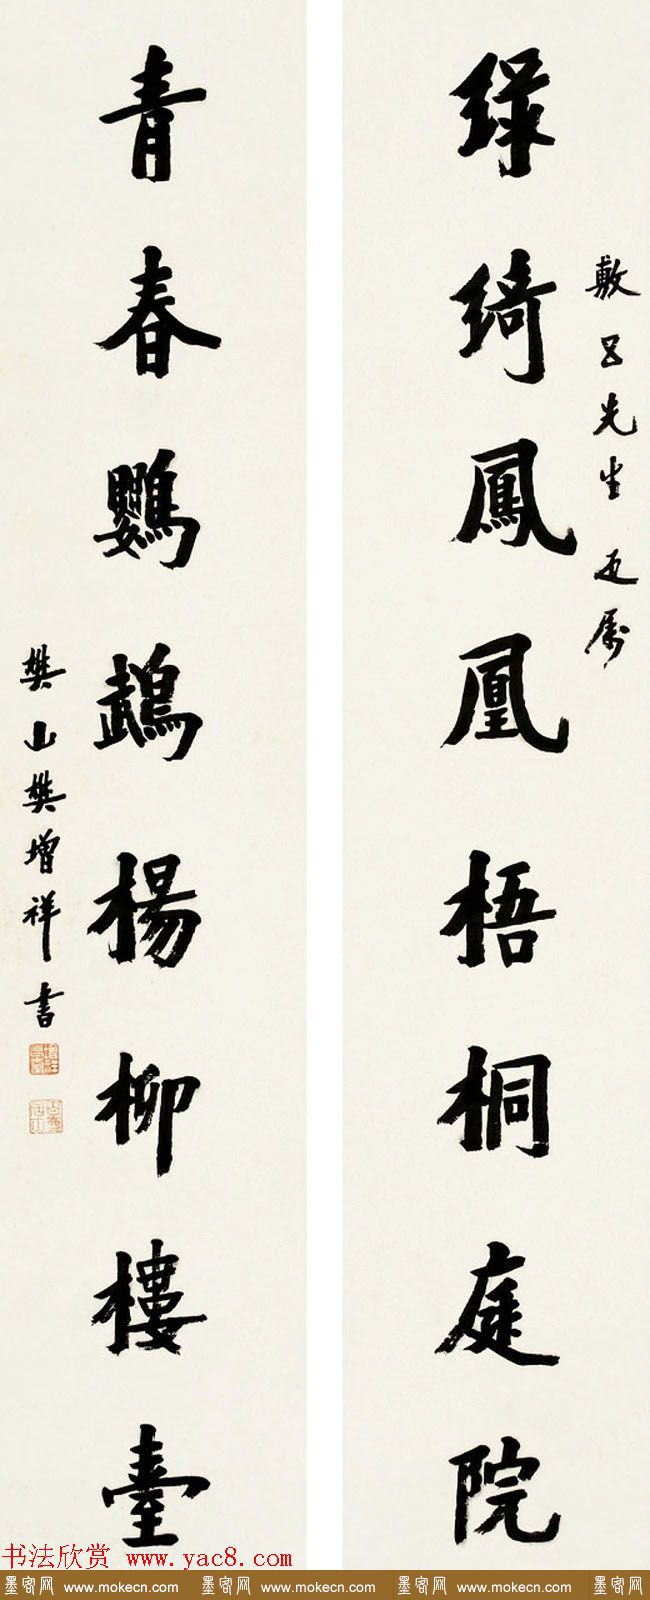 敷吕先生正属
綠綺鳳凰梧桐庭院
青春鸚鵡楊柳樓臺
樊山樊增祥書
书法欣赏 www.yac8.com
墨客网 www.mokecn.com 墨客网 www.mokecn.com 墨客网 www.mokecn.com 墨客网 www.mokecn.com